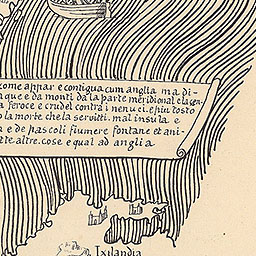 come appar e contigua cum anglia ma di-
aque e da monti da la parte meridional e la gen-
a feroce e crudel contra inenuci. e piu tosto
o la morte che la servitu. mal insula e
a e de pascoli fiumere fontane et ani-
tte altre. cose e qual ad anglia
Ixilandia